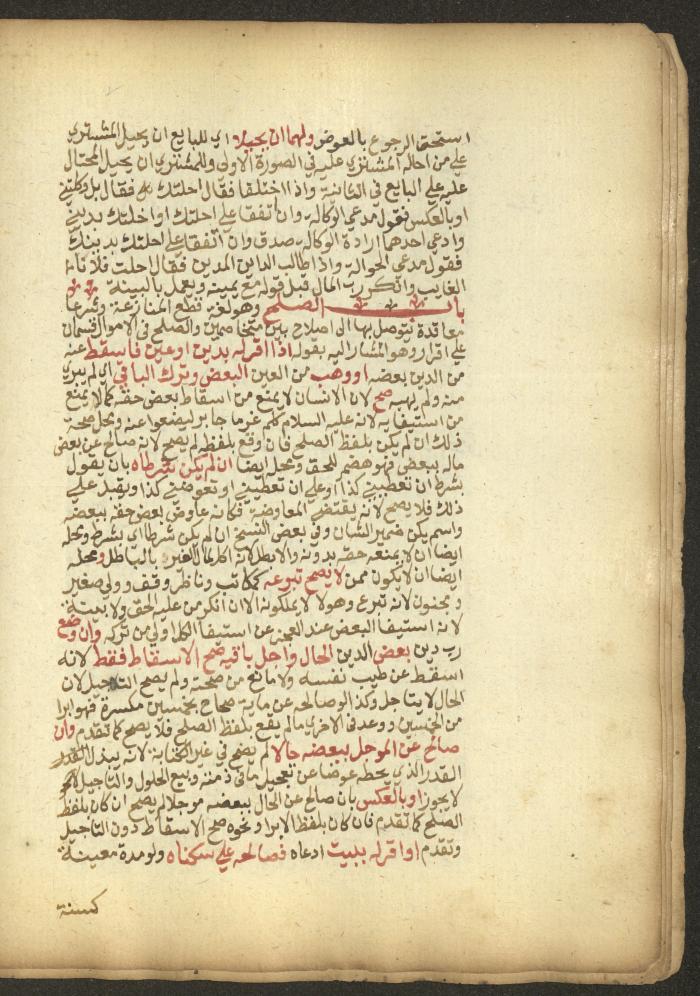 استحق الرجوع بالعوض ولهما ان يحيلا اي للبايع ان يحيل المشتري
علي من احاله المشتري عليه في الصورة الاولي وللمشتري ان يحيل المحتال
عليه علي البايع في الثانية واذا اختلفا فقال احلتك قال بل وكلتني
او بالعكس فقول مدعي الوكالة وان اتفقا علي احلتك او احلتك بديني
وادعي احدهما ارادة الوكالة صدق وان اتفقا علي احلتك بدينك
فقول مدعي الحوالة واذا طالب الداين المدين فقال احلت فلانا
الغايب وانكر رب المال قبل قوله مع يمينه ويعمل بالبينة
باب الصلح وهو لغة قطع المنازعة وشرعا
معاقدة يتوصل بها الي اصلاح بين متخاصمين والصلح في الاموال قسمان
علي اقرار وهو المشار اليه بقوله اذا اقر له بدين او عين فاسقط عنه
من الدين بعضه او وهب من العين البعض وترك الباقي اي لم يبري
منه ولم يهبه صح لان الانسان لا يمنع من اسقاط بعض حقه كما لا يمنع
من استيفايه لانه عليه السلام كلم غرما جابر ليضعوا عنه ومحل صحة
ذلك ان لم يكن بلفظ الصلح فان وقع بلفظه لم يصح لانه صالح عن بعض
ماله ببعض فهو هضم للحق ومحل ايضا ان لم يكن شرطاه بان يقول
بشرط ان تعطيني كذا او علي ان تعطيني او تعوضني كذا ويقبل علي
ذلك فلا يصح لانه يقتضي المعاوضة فكانه عاوض بعض حقه ببعضه
واسم يكن ضمير الشان وفي بعض النسخ ان لم يكن شرطا اي بشرط ومحله
ايضا ان لا يمنعه حقه بدونه والا بطل لانه اكل لمال الغير بالباطل ومحله
ايضا ان لا يكون ممن لا يصح تبرعه كمكاتب وناظر وقف وولي صغير
ومجنون لانه تبرع وهولا لا يملكونه الا ان انكر من عليه الحق ولا بينة
لانه استيفا البعض عند العجز عن استيفا الكل اولي من تركه وان وضع
رب دين بعض الدين الحال واجل باقيه صح الاسقاط فقط لانه
اسقط عن طيب نفسه ولا مانع من صحته ولم يصح التاجيل لان
الحال لا يتاجل وكذا لو صالحه عن ماية صحاح بخمسين مكسرة فهو ابرا
من الخمسين ووعد في الاخري ما لم يقع بلفظ الصلح فلا يصح كما تقدم وان
صالح عن الموجل ببعضه حالا لم يصح في غير الكتابة لانه يبذل القدر
القدر الذي يحطه عوضا عن تعجيل ما في ذمته وبيع الحلول والتاجيل
لا يجوز او بالعكس بان صالح عن الحال ببعضه موجلا لم يصح ان كان بلفظ
الصلح كما تقدم فان كان بلفظ الابرا ونحوه صح الاسقاط دون التاجيل
وتقدم او اقر له ببيت ادعاه فصالحه علي سكناه ولو مدة معينة
كسنة